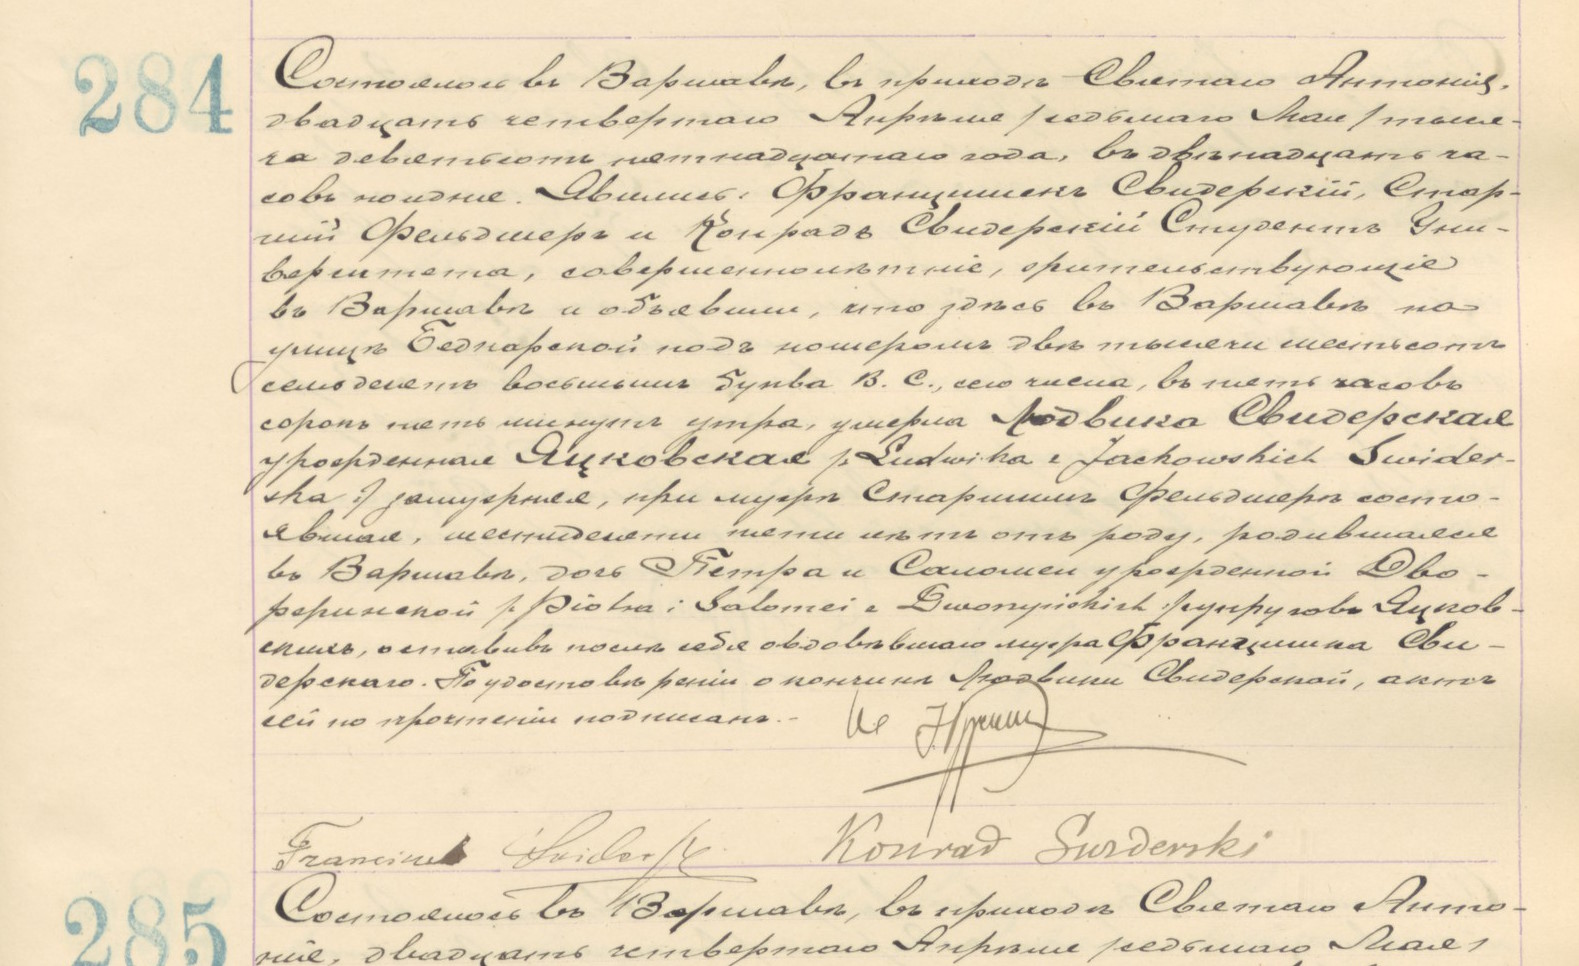 284
Состоялось въ Варшавѣ, въ приходѣ Святаго Антонія,
двадцать четвертаго Апрѣля /седьмаго Мая/ тыся-
ча девятьсотъ пятнадцатаго года, въ двѣнадцать ча-
совъ полудня. Явились: Францишекъ Свидерскій, Стар-
шій Фельдшеръ и Конрадъ Свидерскій Студентъ Уни-
верситета, совершеннолѣтніе, жительствующіе
въ Варшавѣ и объявили, что здѣсь въ Варшавѣ на
улицѣ Беднарской подъ номеромъ двѣ тысячи шестьсотъ
семьдесятъ восьмымъ буква В. С., сего числа, въ пять часовъ
сорокъ пять минутъ утра, умерла Людвика Свидерская
урожденная Яцковская /: Ludwika z Jackowskich Swider-
ska :/ замужняя, при мужѣ Старшимъ Фельдшерѣ состо-
явшая, шестидесяти пяти лѣтъ отъ роду, родившаяся
въ Варшавѣ, дочь Петра и Саломеи урожденной Дво-
ржинской /: Piotra i Salomei z Dworzyńskich :/ супруговъ Яцков-
скихъ, оставивъ послѣ себя овдовѣвшаго мужа Францишка Сви-
дерскаго. По удостовѣреніи о кончинѣ Людвики Свидерской, актъ
сей по прочтеніи подписанъ.-
Franciszek Swiderski Konrad Swiderski
285
Состоялось въ Варшавѣ, въ приходѣ Святаго Анто-
нія, двадцать четвертаго Апрѣля /седьмаго Мая/